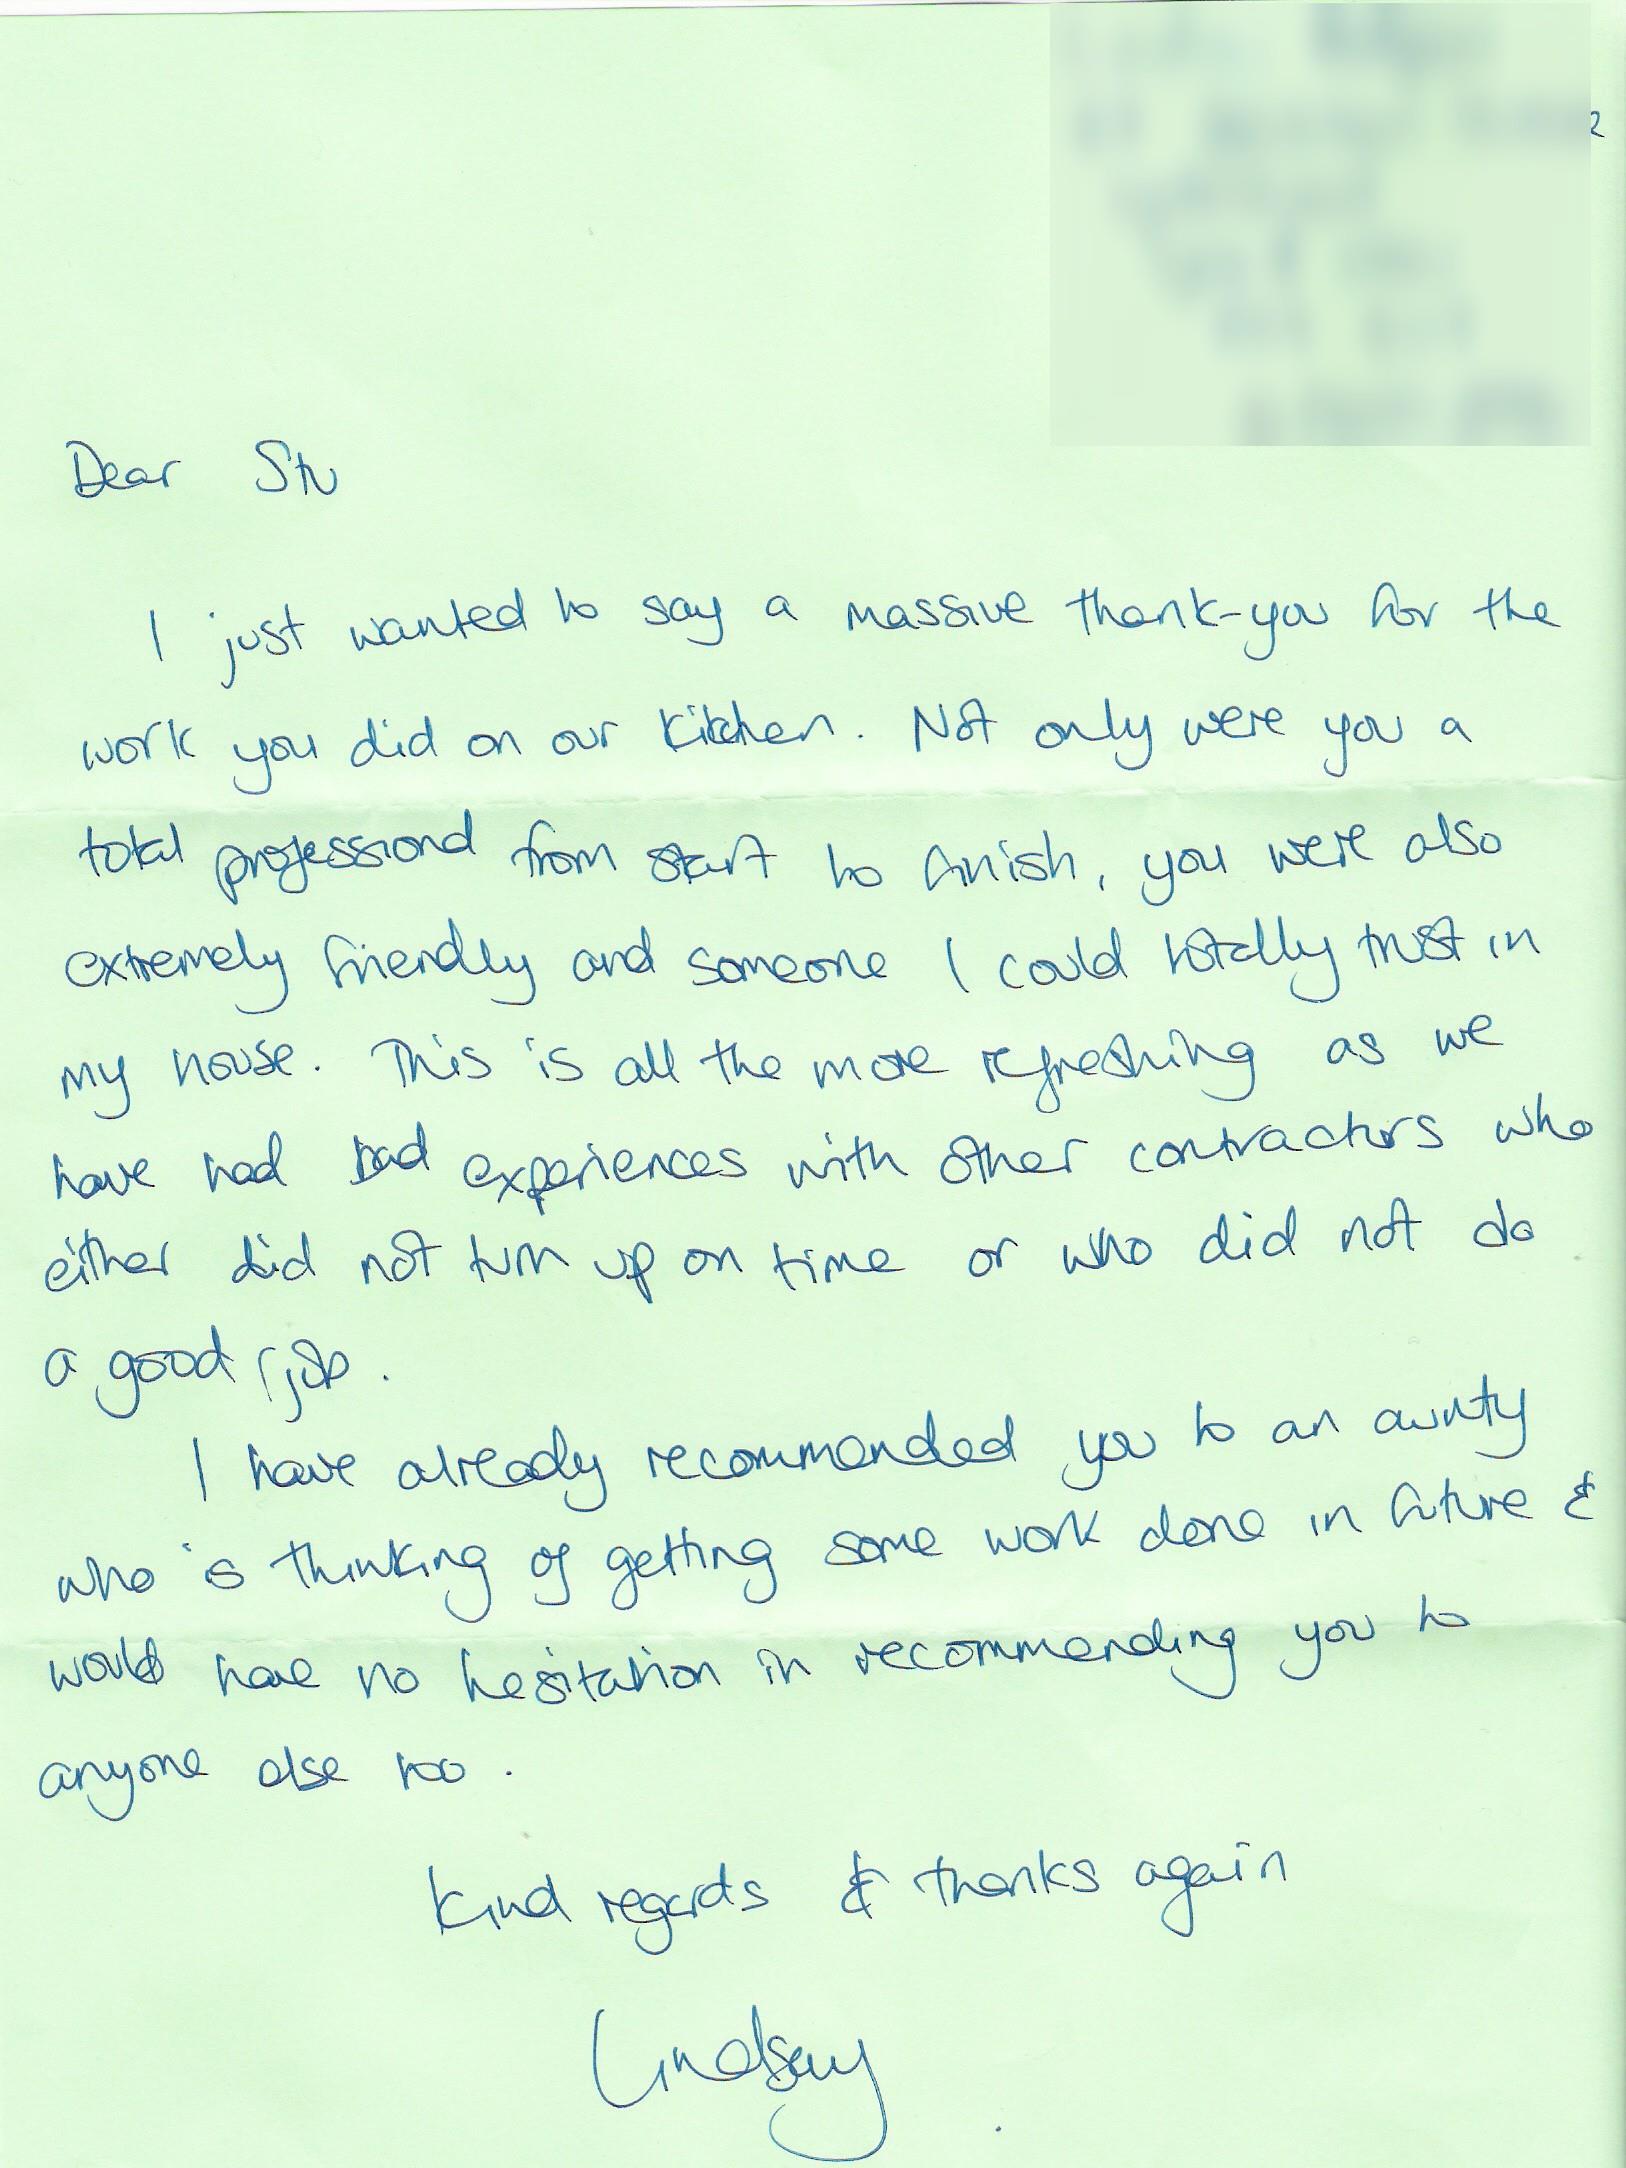 Dear Stu
I just wanted to say a massive thank-you for the
work you did on our kitchen. Not only were you a
total professional from start to finish, you were also
extremely friendly and someone I could totally trust in
my house. This is all the more refreshing as we
have had bad experiences with other contractors who
either did not turn up on time or who did not do
a good job.
I have already recommended you to an aunty
who is thinking of getting some work done in future &
would have no hesitation in recommending you to
anyone else too.
Kind regards & thanks again
Lindsay